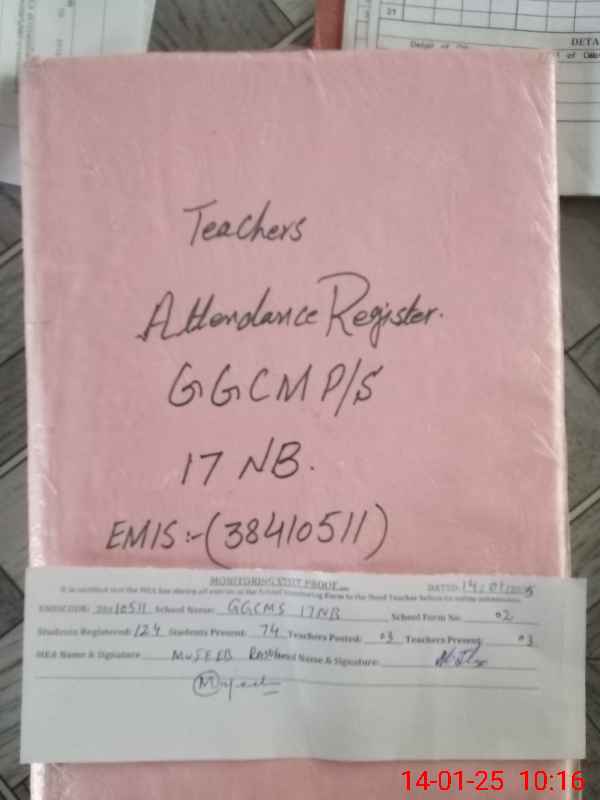 21
DETA
Teachers
Attendance Register.
GGCMP/S
17 NB.
EMIS:-(38410511)
MONITORING VISIT PROOF
DATED: 14/01/2025
It is certified that the MEA has shown all entries of the School Monitoring Form to the Head Teacher before its online submission.
EMISCODE: 38410511 School Name: GGCMS 17NB School Form No. 02
Students Registered: 124 Students Present: 74 Teachers Posted: 03 Teachers Present: 03
MEA Name & Signature MUSEEB Name & Signature:
14-01-25 10:16